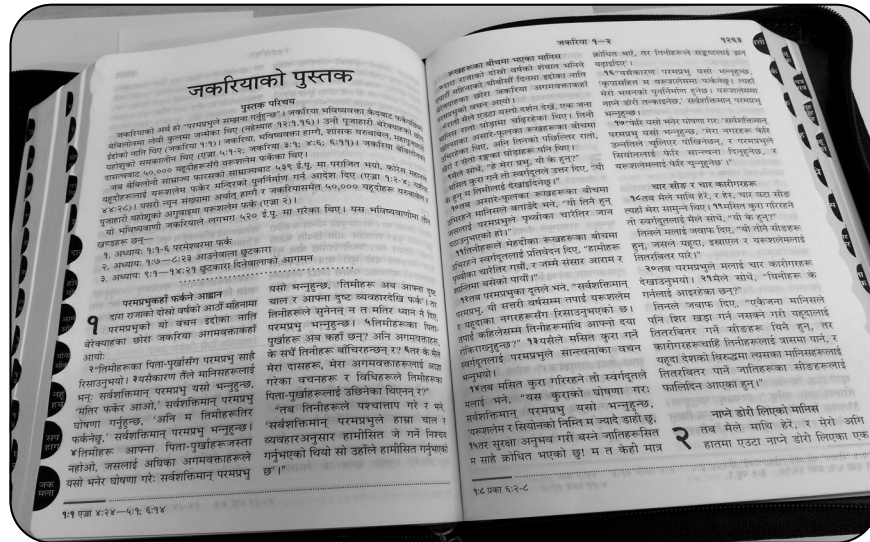 जकरियाको पुस्तक
पुस्तक परिचय
जकरियाको अर्थ हो “परमप्रभुले सम्झना गर्नुहुन्छ”। जकरिया भविष्यवक्ता कैदबाट फर्केपछि
बेबिलोनमा लेवी कुलमा जन्मेका थिए (नहेम्याह १२:१,१६)। उनी पूजाहारी बेरेक्याहको छोरा
इद्दोको नाति थिए (जकरिया १:१)। जकरिया, भविष्यवक्ता हाग्गै, शासक यरुबाबेल, महान्
यहोशूको समकालीन थिए (एज्रा ५:१-२; जकरिया ३:१; ४:६; ६:११)। जकरिया बेबिलोनका
दासत्वबाट ५०,००० यहूदीहरूसँगै यरूशलेम फर्केका थिए।
जब बेबिलोनी साम्राज्य फारसको साम्राज्यबाट ५३९ ई.पू. मा पराजित भयो, कोरेस महान्‌ले
यहूदीहरूलाई यरूशलेम फर्केर मन्दिरको पुनर्निर्माण गर्न आदेश दिए (एज्रा १:२-४; यशैया
४४:२८)। यसरी न्यून संख्यामा अर्थात् हाग्गै र जकरियासमेत ५०,००० यहूदीहरू यरुबाबेल र
पूजाहारी यहोशूको अगुवाइमा यरूशलेम फर्के (एज्रा २)।
यो भविष्यवाणी जकरियाले लगभग ५२० ई.पू. मा गरेका थिए। यस भविष्यवाणीमा तीन
खण्डहरू छन्—
१. अध्याय: १:१-६ परमेश्वरमा फर्क
२. अध्याय: १:७—८:२३ आउनेवाला छुटकारा
३. अध्याय: ९:१—१४:२१ छुटकारा दिनेवालाको आगमन
परमप्रभुकहाँ फर्कने आह्वान
१ दारा राजाको दोस्रो वर्षको आठौं महिनामा
परमप्रभुको यो वचन इद्दोका नाति
बेरेक्याहका छोरा जकरिया अगमवक्ताकहाँ
आयो:
२“तिमीहरूका पिता-पुर्खासँग परमप्रभु साह्रै
रिसाउनुभयो। ३यसैकारण तैंले मानिसहरूलाई
भन्: सर्वशक्तिमान् परमप्रभु यसो भन्नुहुन्छ,
‘मतिर फर्केर आओ,’ सर्वशक्तिमान् परमप्रभु
घोषणा गर्नुहुन्छ, ‘अनि म तिमीहरूतिर
फर्कनेछु,’ सर्वशक्तिमान् परमप्रभु भन्नुहुन्छ।
४तिमीहरू आफ्ना पिता-पुर्खाहरूजस्ता
नहोओ, जसलाई अघिका अगमवक्ताहरूले
यसो भनेर घोषणा गरे: सर्वशक्तिमान् परमप्रभु
यसो भन्नुहुन्छ, ‘तिमीहरू अब आफ्ना दुष्ट
चाल र आफ्ना दुष्ट व्यवहारदेखि फर्क’। तर
तिनीहरूले सुनेनन् न त मतिर ध्यान नै दिए,
परमप्रभु भन्नुहुन्छ। ५तिमीहरूका पिता-
पुर्खाहरू अब कहाँ छन्? अनि अगमवक्ताहरू,
के सधैं तिनीहरू बाँचिरहन्छन् र? ६तर के मैले
मेरा दासहरू, मेरा अगमवक्ताहरूलाई आज्ञा
गरेका वचनहरू र विधिहरूले तिमीहरूका
पिता-पुर्खाहरूलाई उछिनेका थिएनन् र?”
“तब तिनीहरूले पश्चात्ताप गरे र भने,
‘सर्वशक्तिमान् परमप्रभुले हाम्रा चाल र
व्यवहारअनुसार हामीसित जे गर्ने निश्चय
गर्नुभएको थियो सो उहाँले हामीसित गर्नुभएको
छ’।”
१:१ एज्रा ४:२४—५:१; ६:१४
जकरिया १—२ १२६३
रूखहरूका बीचमा भएका मानिस
दारा राजाको दोस्रो वर्षको शेबात भनिने
महिनाको चौबीसौं दिनमा इद्दोका नाति
बेरेक्याहका छोरा जकरिया अगमवक्ताकहाँ
परमप्रभुको वचन आयो।
मैले एउटा यस्तो दर्शन देखें, एक जना
मानिस रातो घोडामा चढिरहेका थिए। तिनी
असारे-फूलका रूखहरूका बीचमा
उभिरहेका थिए, अनि तिनको पछिल्तिर राता,
खैरा र सेता रङ्गका घोडाहरू पनि थिए।
९मैले सोधें, “हे मेरा प्रभु, यी के हुन्?”
मसित कुरा गर्ने ती स्वर्गदूतले उत्तर दिए, “यी
के हुन् म तिमीलाई देखाइदिनेछु।”
१०तब असारे-फूलका रूखहरूका बीचमा
उभिरहने मानिसले बताउँदै भने, “यी तिनै हुन्
जसलाई परमप्रभुले पृथ्वीका चारैतिर जान
पठाउनुभएको हो।”
११तिनीहरूले मेहदीका रूखहरूका बीचमा
उभिरहने स्वर्गदूतलाई प्रतिवेदन दिए, “हामीहरू
पृथ्वीका चारैतिर गयौं, र जम्मै संसार आराम र
शान्तिमा बसेको पायौं।”
१२तब परमप्रभुका दूतले भने, “सर्वशक्तिमान्
परमप्रभु, यी सत्तरी वर्षसम्म तपाईं यरूशलेम
र यहूदाका नगरहरूसँग रिसाउनुभएको छ।
तपाईं कहिलेसम्म तिनीहरूमाथि आफ्नो दया
रोकिराख्नुहुन्छ?” १३यसैले मसित कुरा गर्ने
स्वर्गदूतलाई परमप्रभुले सान्त्वनाका वचन
भन्नुभयो।
१४तब मसित कुरा गरिरहने ती स्वर्गदूतले
मलाई भने, “यस कुराको घोषणा गर:
सर्वशक्तिमान् परमप्रभु यसो भन्नुहुन्छ,
‘यरूशलेम र सियोनको निम्ति म ज्यादै डाही छु,
१५तर सुरक्षा अनुभव गरी बस्ने जातिहरूसित
म साह्रै क्रोधित भएको छु! म त केही मात्र
१:८ प्रका ६:२-८
क्रोधित भएँ, तर तिनीहरूले सङ्कष्टलाई झन्
बढाइदिए’।
१६“यसैकारण परमप्रभु यसो भन्नुहुन्छ,
‘कृपासहित म यरूशलेममा फर्कनेछु। त्यहाँ
मेरो भवनको पुनर्निर्माण हुनेछ। यरूशलेममा
नाप्ने डोरी तन्काइनेछ,’ सर्वशक्तिमान् परमप्रभु
भन्नुहुन्छ।
१७“फेरि यसो भनेर घोषणा गर: ‘सर्वशक्तिमान्
परमप्रभु यसो भन्नुहुन्छ, “मेरा नगरहरू फेरि
उन्नतिले पुलिएर पोखिनेछन्, र परमप्रभुले
सियोनलाई फेरि सान्त्वना दिनुहुनेछ, र
यरूशलेमलाई फेरि चुन्नुहुनेछ।”’
चार सीङ र चार कारीगरहरू
१८तब मैले माथि हेरें, र हेर, चार वटा सीङ
त्यहाँ मेरा सामुन्ने थिए। १९मसित कुरा गरिरहने
ती स्वर्गदूतलाई मैले सोधें, “यी के हुन्?”
तिनले मलाई जवाफ दिए, “यी तीनै सीङहरू
हुन्, जसले यहूदा, इस्राएल र यरूशलेमलाई
तितरबितर पारे।”
२०तब परमप्रभुले मलाई चार कारीगरहरू
देखाउनुभयो। २१मैले सोधें, “यिनीहरू के
गर्नलाई आइरहेका छन्?”
तिनले जवाफ दिए, “एकैजना मानिसले
पनि शिर खडा गर्न नसक्ने गरी यहूदालाई
तितरबितर गर्ने सीङहरू यिनै हुन्, तर
कारीगरहरूचाहिँ तिनीहरूलाई त्रासमा पार्न, र
यहूदा देशको विरूद्धमा त्यसका मानिसहरूलाई
तितरबितर पार्ने जातिहरूका सीङहरूलाई
फालिदिन आएका हुन्।”
नाप्ने डोरी लिएको मानिस
२ तब मैले माथि हेरें, र मेरो अगि
हातमा एउटा नाप्ने डोरी लिएका एक